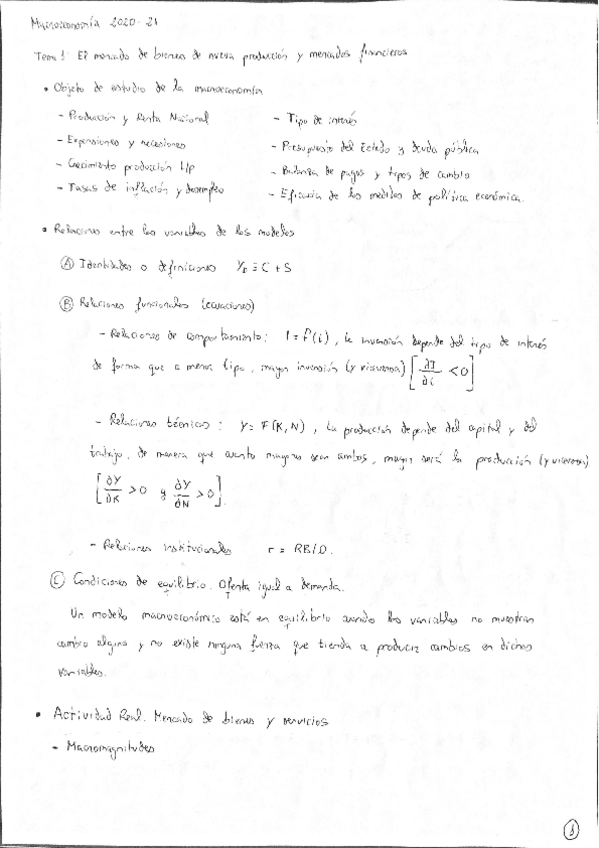 Macroeconomía 2020-21
Tema 1: El mercado de bienes de nueva producción y mercados financieros
• Objeto de estudio de la macroeconomía
- Producción y Renta Nacional
- Expansiones y recesiones
- Crecimiento producción l/p
- Tasas de inflación y desempleo
- Tipo de interés
- Presupuesto del Estado y deuda pública
- Balanza de pagos y tipos de cambio
- Eficacia de las medidas de política económica.
• Relaciones entre las variables de los modelos
Ⓐ Identidades o definiciones Y ≡ C + S
Ⓑ Relaciones funcionales (ecuaciones)
- Relaciones de comportamiento: I = f(i), la inversión depende del tipo de interés
de forma que a menor tipo, mayor inversión (y viceversa) [∂I/∂i < 0]
- Relaciones técnicas: Y = F(K,N), la producción depende del capital y del
trabajo, de manera que cuanto mayores sean ambos, mayor será la producción (y viceversa)
[∂Y/∂K > 0 y ∂Y/∂N > 0].
- Relaciones institucionales r = RB/D.
Ⓒ Condiciones de equilibrio. Oferta igual a demanda.
Un modelo macroeconómico está en equilibrio cuando las variables no muestran
cambio alguno y no existe ninguna fuerza que tienda a producir cambios en dichas
variables.
• Actividad Real. Mercado de bienes y servicios
- Macromagnitudes
①